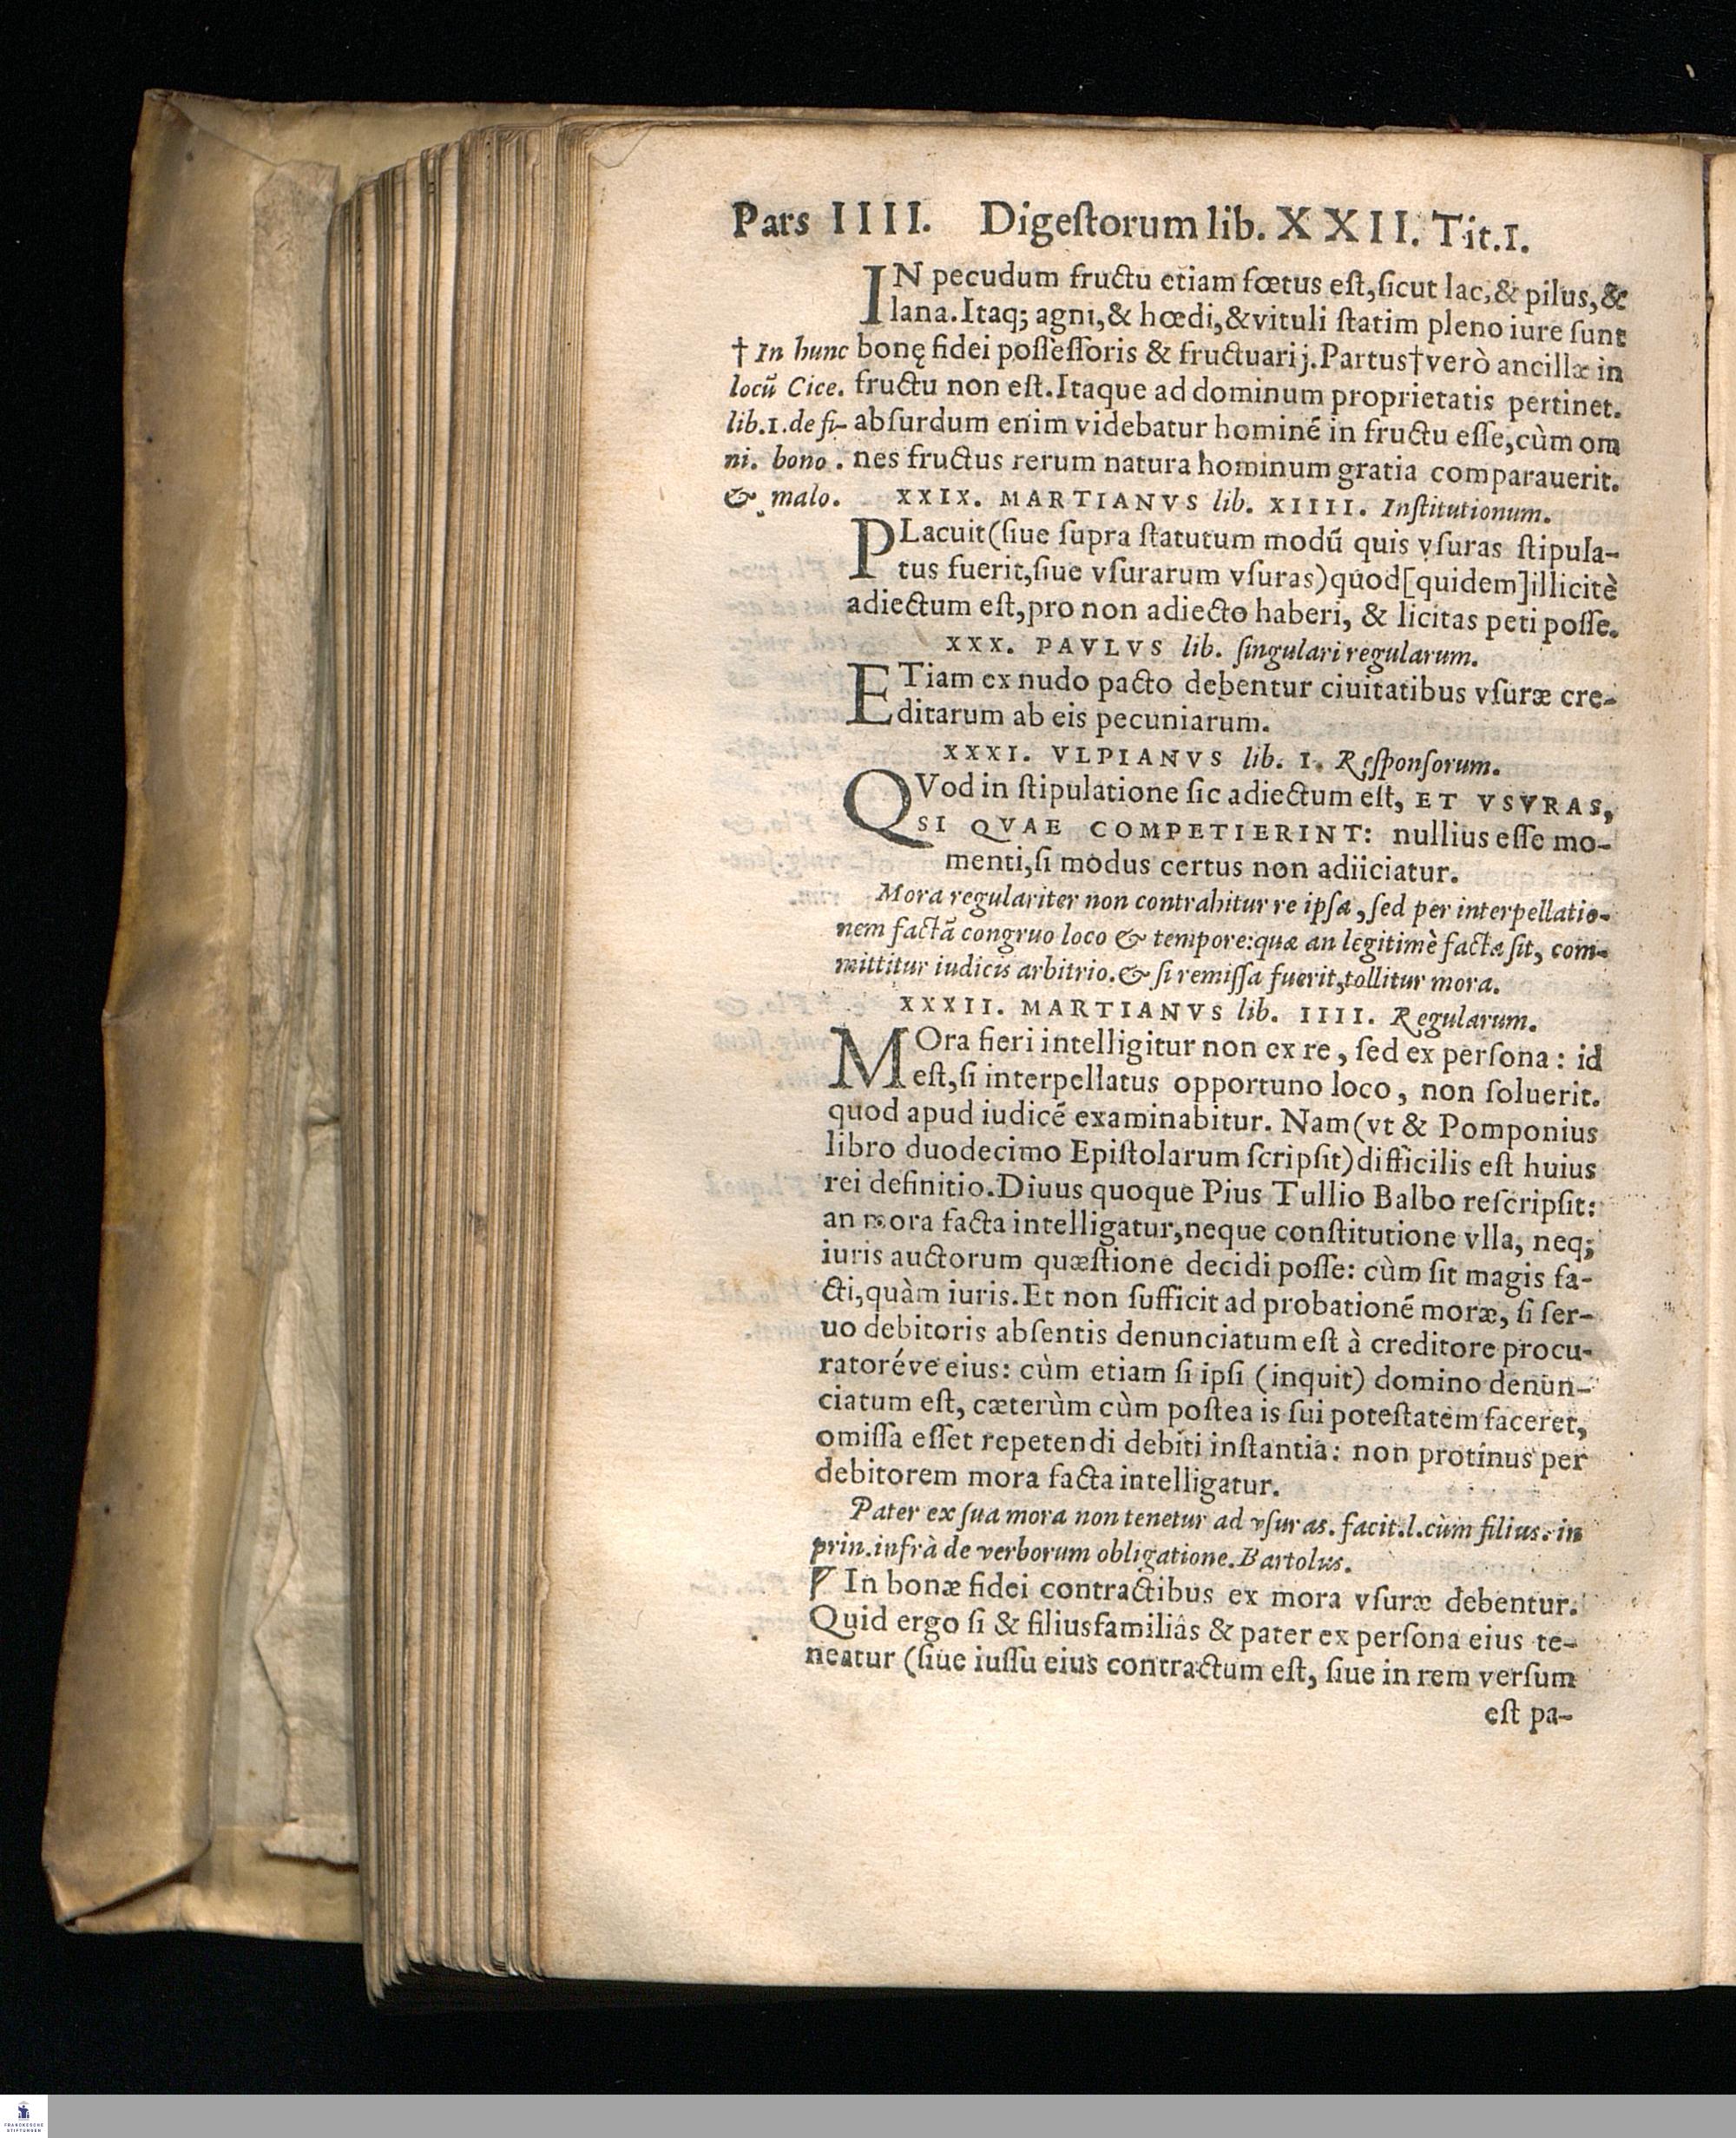 Pars IIII. Digeſtorum lib. XXII. Tit.I.
IN pecudum fructu etiam fœtus eſt,ſicut lac,& pilus,&
lana.Itaq; agni,& hœdi,&vituli ſtatim pleno iure ſunt
bonę fidei poſſeſſoris & fructuarij.Partus†verò ancillæ in
fructu non eſt.Itaque ad dominum proprietatis pertinet.
abſurdum enim videbatur hominé in fructu eſſe,cùm om
nes fructus rerum natura hominum gratia comparauerit.
† In hunc
locũ Cice.
lib.1.de fi-
ni. bono .
& malo.
XXIX. MARTIANVS lib. XIIII. Inſtitutionum.
PLacuit(ſiue ſupra ſtatutum modũ quis vſuras ſtipula-
tus fuerit,ſiue vſurarum vſuras)quod[quidem]illicitè
adiectum eſt,pro non adiecto haberi, & licitas peti poſſe.
XXX. PAVLVS lib. ſingulari regularum.
ETiam ex nudo pacto debentur ciuitatibus vſuræ cre-
ditarum ab eis pecuniarum.
XXXI. VLPIANVS lib. I. Reſponſorum.
QVod in ſtipulatione ſic adiectum eſt, ET VSVRAS,
SI QVAE COMPETIERINT: nullius eſſe mo-
menti,ſi modus certus non adiiciatur.
Mora regulariter non contrahitur re ipſa, ſed per interpellatio-
nem factã congruo loco & tempore:quæ an legitimè facta ſit, com-
mittitur iudicis arbitrio.& ſi remiſſa fuerit,tollitur mora.
XXXII. MARTIANVS lib. IIII. Regularum.
MOra fieri intelligitur non ex re, ſed ex perſona: id
eſt,ſi interpellatus opportuno loco, non ſoluerit.
quod apud iudicé examinabitur. Nam(vt & Pomponius
libro duodecimo Epiſtolarum ſcripſit)difficilis eſt huius
rei definitio.Diuus quoque Pius Tullio Balbo reſcripſit:
an mora facta intelligatur,neque conſtitutione vlla, neq;
iuris auctorum quæſtione decidi poſſe: cùm ſit magis fa-
cti,quàm iuris.Et non ſufficit ad probationé moræ, ſi ſer-
uo debitoris abſentis denunciatum eſt à creditore procu-
ratoréve eius: cùm etiam ſi ipſi (inquit) domino denun-
ciatum eſt, cæterùm cùm poſtea is ſui poteſtatem faceret,
omiſſa eſſet repetendi debiti inſtantia: non protinus per
debitorem mora facta intelligatur.
Pater ex ſua mora non tenetur ad vſuras. facit.l.cùm filius. in
prin.infrà de verborum obligatione.Bartolus.
In bonæ fidei contractibus ex mora vſuræ debentur.
Quid ergo ſi & filiusfamiliâs & pater ex perſona eius te-
neatur (ſiue iuſſu eius contractum eſt, ſiue in rem verſum
eſt pa-
FRANCKESCHE
STIFTUNGEN